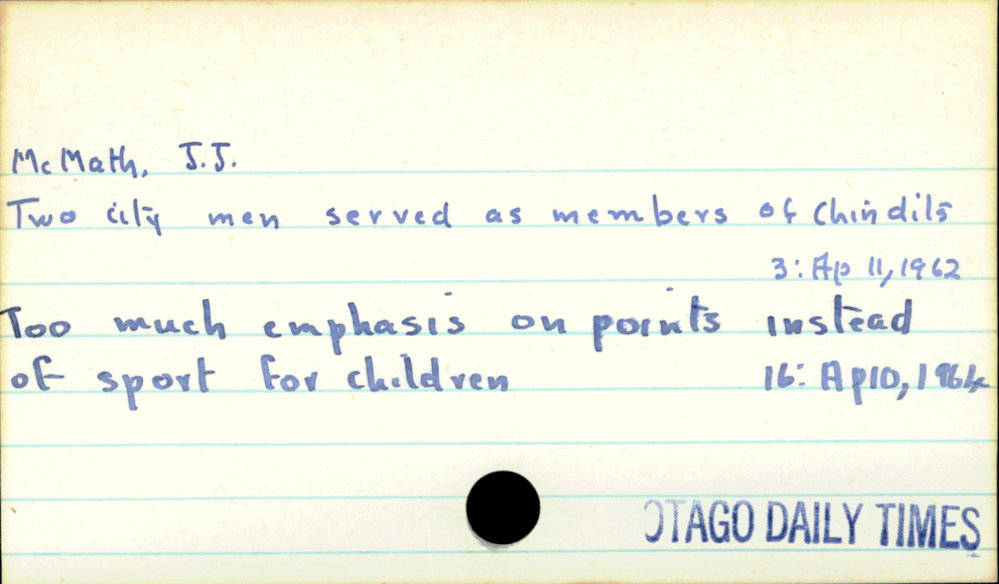 McMath, J.J.
Two city men served as members of Chindits
3: Ap 11, 1962
Too much emphasis on points instead
of sport for children 16: Ap 10, 1964
OTAGO DAILY TIMES